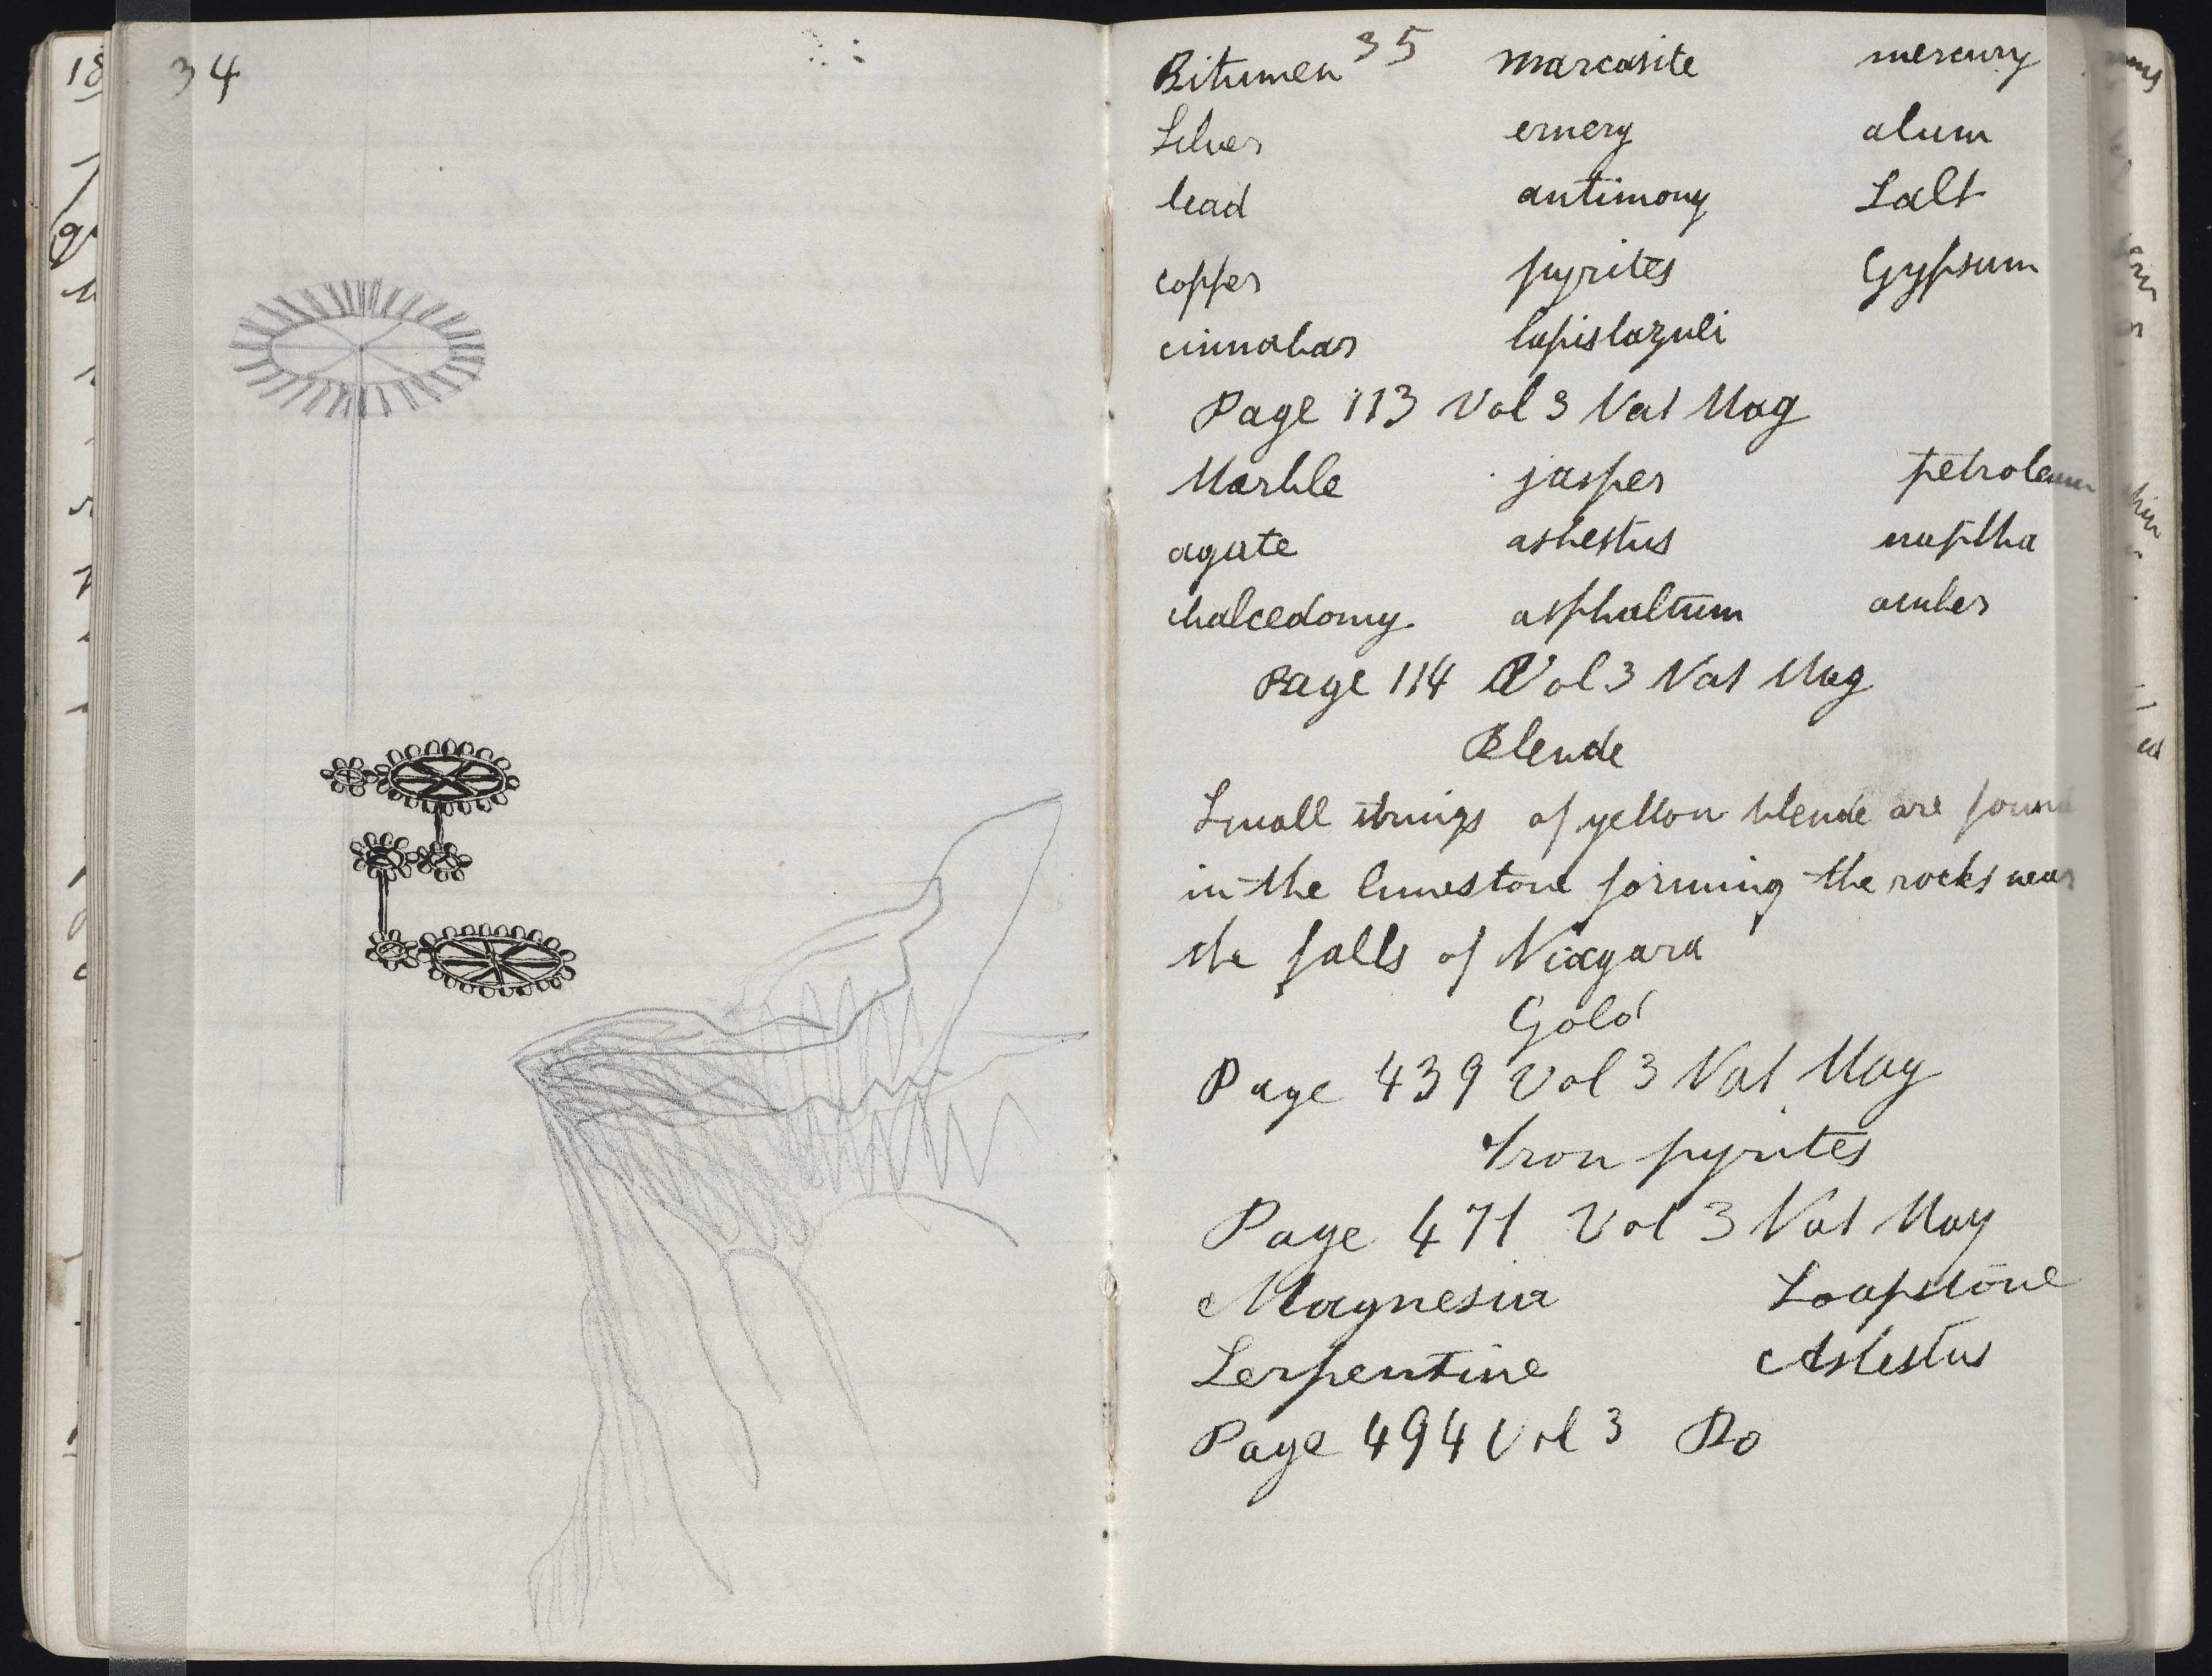 34
35
Bitumen marcasite mercury
Silver emery alum
lead antimony Salt
copper pyrites Gypsum
cinnabar lapislazuli
Page 113 Vol 3 Nat Mag
Marble jasper petroleum
agate asbestus naptha
chalcedony asphaltum amber
Page 114 Vol 3 Nat Mag
Blende
Small strings of yellow blende are found
in the limestone forming the rocks near
the falls of Niagara
Gold
Page 439 Vol 3 Nat Mag
Iron pyrites
Page 471 Vol 3 Nat Mag
Magnesia Soapstone
Serpentine Asbestus
Page 494 Vol 3 Do